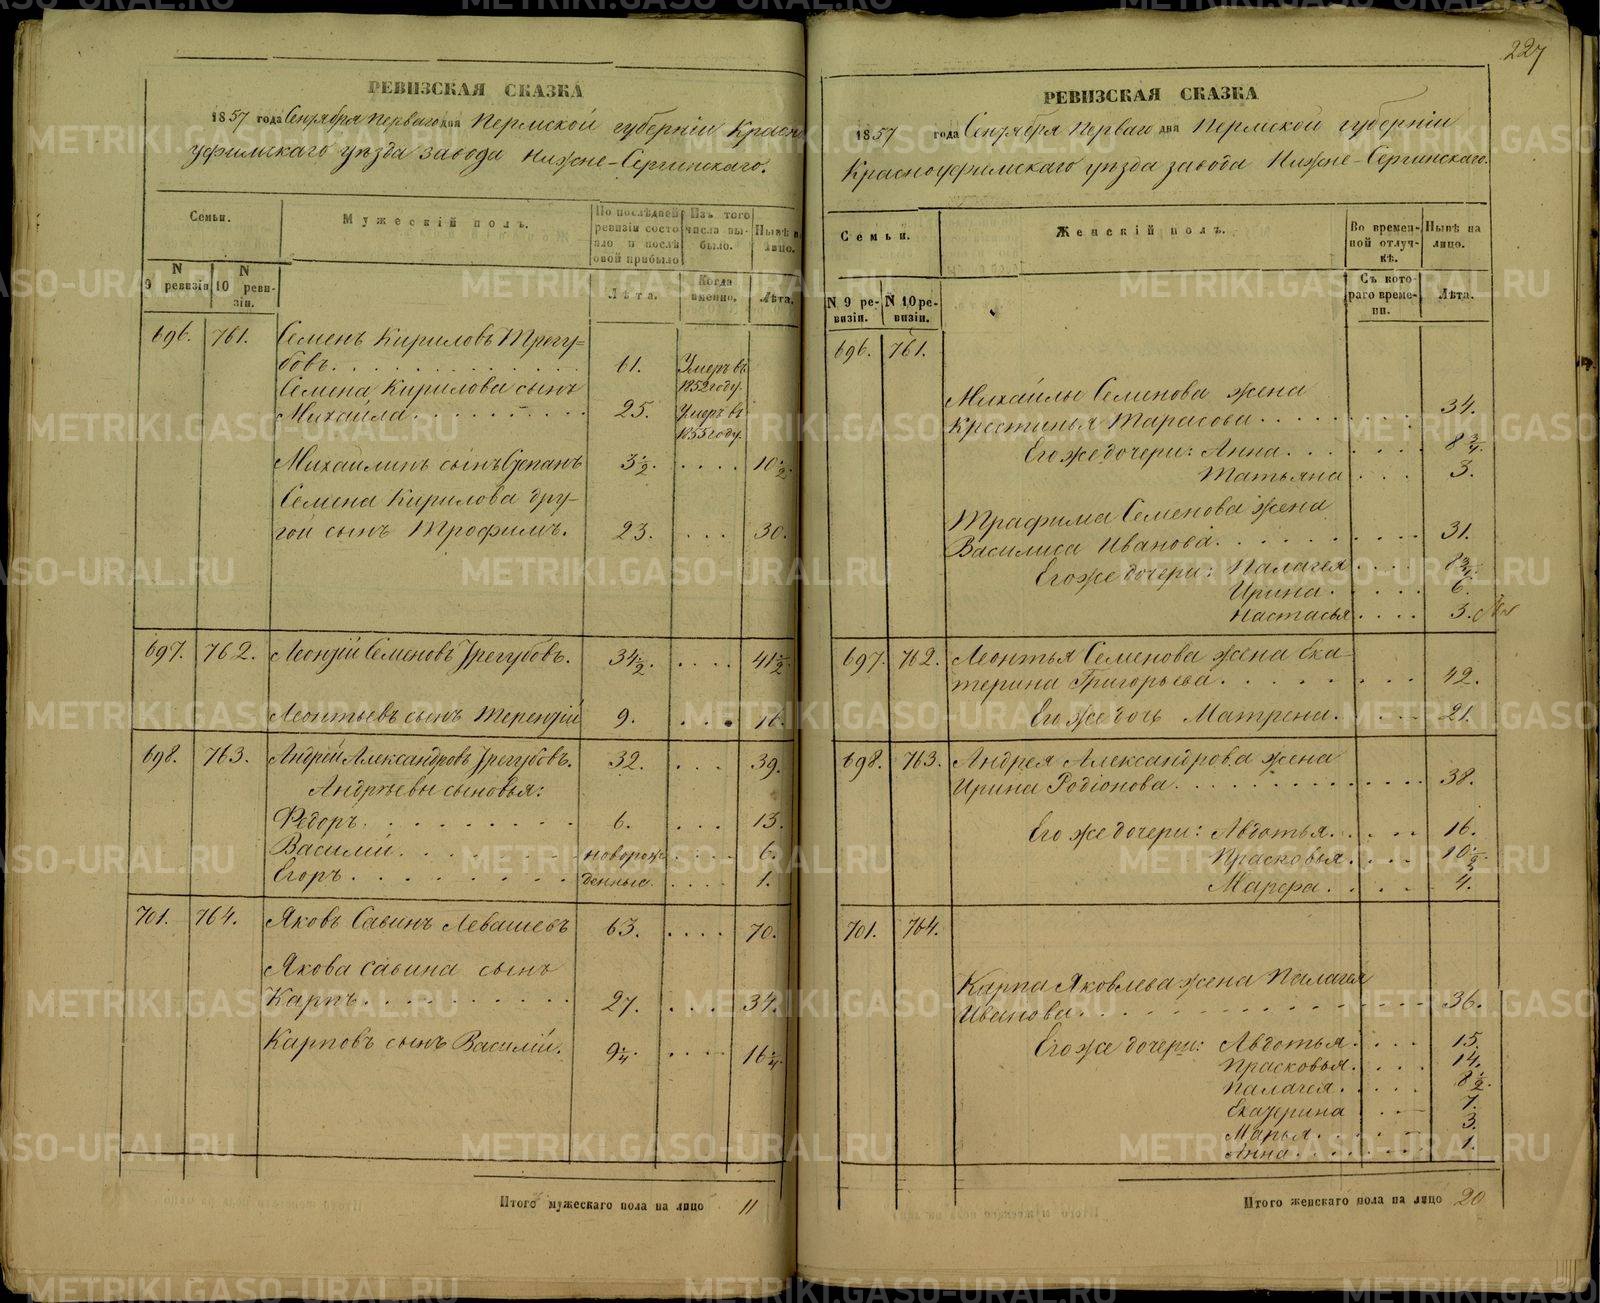 РЕВИЗСКАЯ СКАЗКА
1857 года Сентября перваго дня Пермской губерніи Красно
уфимскаго уѣзда завода Нижне-Сергинскаго.
Семьи.
Мужескій полъ.
По послѣдней ревизіи состояло и послѣ оной прибыло
Изъ того числа выбыло.
Нынѣ на лицо.
N 9 ревизіи
N 10 ревизіи.
Лѣта.
Когда именно.
Лѣта.
696. 761. Семенъ Кириловъ Трегу-
бовъ. 61. Умеръ въ 1852 году.
Семена Кирилова сынъ
Михайла. 25. Умеръ въ 1855 году.
Михайлинъ сынъ Степанъ 3½. 10½.
Семена Кирилова дру-
гой сынъ Трофимъ. 23. 30.
697. 762. Леонтій Семеновъ Трегубовъ. 34½. 41½.
Леонтьевъ сынъ Терентій 9. 16.
698. 763. Андрей Александровъ Трегубовъ. 32. 39.
Андреевы сыновья:
Федоръ. 6. 13.
Василій. новорож- 6.
Егоръ. денные. 1.
701. 764. Яковъ Савинъ Левашевъ 63. 70.
Якова Савина сынъ
Карпъ. 27. 34.
Карповъ сынъ Василій. 9¼. 16¼.
Итого мужескаго пола на лицо 11
227
РЕВИЗСКАЯ СКАЗКА
1857 года Сентября Перваго дня Пермской губерніи
Красноуфимскаго уѣзда завода Нижне-Сергинскаго.
Семьи.
Женскій полъ.
Во временной отлучкѣ.
Нынѣ на лицо.
N 9 ревизіи.
N 10 ревизіи.
Съ котораго времени.
Лѣта.
696. 761.
Михайлы Семенова жена
Крестинья Тарасова. 34.
Его же дочери: Анна. 8¾.
Татьяна 3.
Трафима Семенова жена
Василиса Иванова. 31.
Его же дочери: Палагея 8¾.
Ирина. 6.
Настасья 3.
697. 762. Леонтья Семенова жена Ека-
терина Григорьева. 42.
Его же дочь Матрена. 21.
698. 763. Андрея Александрова жена
Ирина Родіонова. 38.
Его же дочери: Авдотья. 16.
Прасковья. 10½.
Марфа. 4.
701. 764.
Карпа Яковлева жена Палагея
Иванова. 36.
Его же дочери: Авдотья. 15.
Прасковья. 14.
Палагея. 8½.
Екатерина 7.
Марья. 3.
Анна. 1.
Итого женскаго пола на лицо 20
METRIKI.GASO-URAL.RU